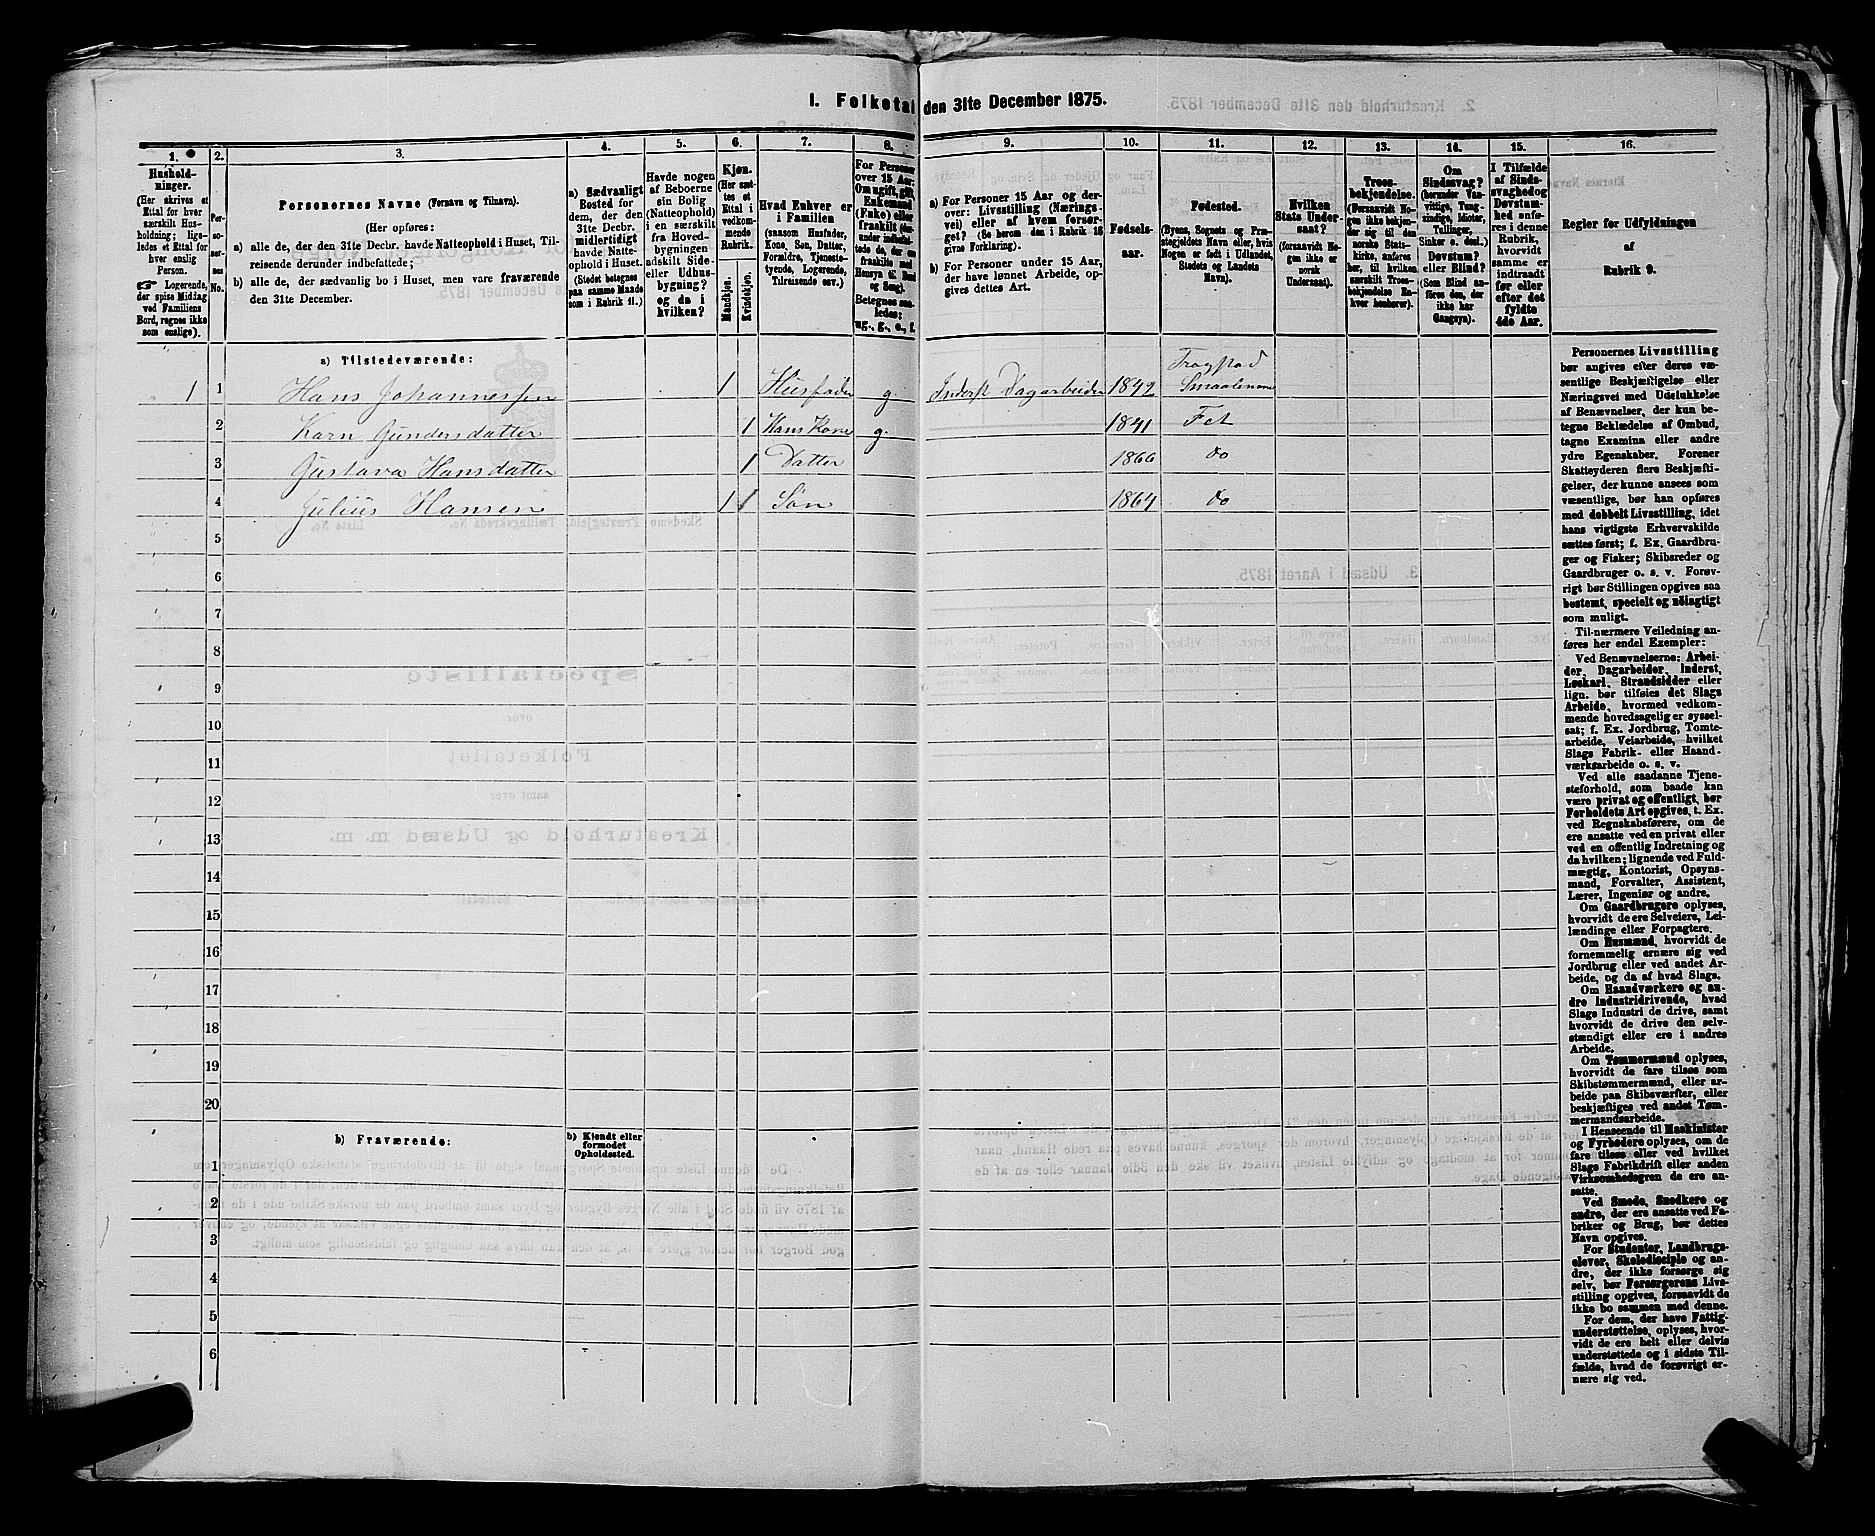 1. Folketal den 31te December 1875.
1.
2.
3.
4.
5.
6.
7.
8.
9.
10.
11.
12.
13.
14.
15.
16.
Hushold-
ninger.
(Her skrives et
Ettal for hver
særskilt Hus-
holdning; lige-
ledes et Ettal for
hver enslig
Person.
Logerende,
der spise Middag
ved Familiens
Bord, regnes ikke
som enslige).
Per-
so-
ner-
nes
No.
Personernes Navne (Fornavn og Tilnavn).
(Her opføres:
a) alle de, der den 31te Decbr. havde Natteophold i Huset, Til-
reisende derunder indbefattede;
b) alle de, der sædvanlig bo i Huset, men vare fraværende
den 31te December.
a) Sædvanligt
Bosted for
dem, der den
31te Decbr.
midlertidigt
havde Natte-
ophold i Huset.
(Stedet betegnes
paa samme Maade
som i Rubrik 11.)
Havde nogen
af Beboerne
sin Bolig
(Natteophold)
i en særskilt
fra Hoved-
bygningen
adskilt Side-
eller Udhus-
bygning?
og da i
hvilken?
Kjøn.
(Her sæt-
tes et
Ettal i
vedkom-
mende
Rubrik.
Mandkjøn.
Kvindekjøn.
Hvad Enhver er
i Familien
(saasom Husfader,
Kone, Søn, Datter,
Forældre, Tjeneste-
tyende, Logerende,
Tilreisende osv.)
For Personer
over 15 Aar:
Om ugift, gift,
Enkemand
(Enke) eller
fraskilt
Betegnes saa-
ledes:
ug., g., e., f.
a) For Personer 15 Aar og der-
over: Livsstilling (Nærings-
vei) eller af hvem forsør-
get? (Se herom den i Rubrik 16
givne Forklaring).
b) For Personer under 15 Aar,
der have lønnet Arbeide, op-
gives dettes Art.
Fødsels-
aar.
Fødested.
(Byens, Sognets og Præ-
stegjeldets Navn eller, hvis
Nogen er født i Udlandet,
Stedets og Landets
Navn).
Hvilken
Stats Under-
saat?
(forsaavidt No-
gen ikke er
norsk
Undersaat).
Troes-
bekjendelse.
(Forsaavidt No-
gen ikke bekjen-
der sig til den
norske Stats-
kirke, anføres
her, til hvilken
særskilt Troes-
bekjendelse En-
hver henhører).
Om
Sindssvag?
(herunder Van-
vittige, Tung-
sindige, Idioter,
Tullinger,
Sinker o. desl.)
Døvstum?
eller Blind?
(Som Blind an-
føres den, der
ikke har
Gangsyn).
I Tilfælde
af Sinds-
svaghed og
Døvstum-
hed anfø-
res i denne
Rubrik,
hvorvidt
samme er
indtraadt
før eller
efter det
fyldte
4de Aar.
Regler for Udfyldningen
af
Rubrik 9.
a) Tilstedeværende:
1 1 Hans Johannessen 1 Husfader g. Inderst Dagarbeider 1842 Trøgstad Smaalenene
2 Karn Gundersdatter 1 Hans Kone g. 1841 Fet
3 Gustava Hansdatter 1 Datter 1866 do
4 Julius Hansen 1 Søn 1864 do
5
6
7
8
9
10
11
12
13
14
15
16
17
18
19
20
b) Fraværende:
b) Kjendt eller
formodet
Opholdssted.
1
2
3
4
5
6
Personernes Livsstilling
bør angives efter deres væ-
sentlige Beskjæftigelse eller
Næringsvei med Udelukkelse
af Benævnelser, der kun be-
tegne Beklædelse af Ombud,
tagne Examina eller andre
ydre Egenskaber. Forener
Skatteyderen flere Beskjæfti-
gelser, der kunne ansees som
væsentlige, bør han opføres
med dobbelt Livsstilling, idet
hans vigtigste Erhvervskilde
sættes først; f. Ex. Gaardbru-
ger og Fisker; Skibsreder og
Gaardbruger o. s. v. Forøv-
rigt bør Stillingen opgives saa
bestemt, specielt og nöiagtigt
som muligt.
Til nærmere Veiledning an-
føres her endel Exempler:
Ved Benævnelserne: Arbei-
der, Dagarbeider, Inderst,
Løskarl, Strandsidder eller
lign. bør tilføies det Slags
Arbeide, hvormed vedkom-
mende hovedsagelig er syssel-
sat; f. Ex. Jordbrug, Tomte-
arbeide, Veiarbeide, hvilket
Slags Fabrik- eller Haand-
værksarbeide o. s. v.
Ved alle saadanne Tjene-
steforhold, som baade kan
være privat og offentligt, bør
Forholdets Art opgives, t. Ex.
ved Regnskabsførere, om de
ere ansatte ved en privat eller
ved en offentlig Indretning og
da hvilken; lignende ved Fuld-
mægtig, Kontorist, Opsyns-
mand, Forvalter, Assistent,
Lærer, Ingeniør og andre.
Om Gaardbrugere oplyses,
hvorvidt de ere Selveiere, Lei-
lændinge eller Forpagtere.
Om Husmænd, hvorvidt de
fornemmelig ernære sig ved
Jordbrug eller ved andet Ar-
beide, og da af hvad Slags.
Om Haandværkere og an-
dre Industridrivende, hvad
Slags Industri de drive, samt
hvorvidt de drive den selv-
stændigt eller ere i andres
Arbeide.
Om Tømmermænd oplyses,
hvorvidt de fare tilsøs som
Skibstømmermænd, eller ar-
beide paa Skibsværfter, eller
beskjæftiges ved andet Tøm-
mermandsarbeide.
I Henseende til Maskinister
og Fyrbødere oplyses, om de
fare tilsøs eller ved hvilket
Slags Fabrikdrift eller anden
Virksomhedsgren de ere an-
satte.
Ved Smede, Snedkere og
andre, der ere ansatte ved Fa-
briker og Brug, bør dettes
Navn opgives.
For Studenter, Landbrugs-
elever, Skoledisciple og an-
dre, der ikke forsørge sig
selv, bør Forsørgerens Livs-
stilling opgives, forsaavidt de
ikke bo sammen med denne.
For dem, der have Fattig-
understøttelse, oplyses, hvor-
vidt de ere helt eller delvis
understøttede og i sidste Til-
fælde, hvad de forøvrigt er-
nære sig ved.